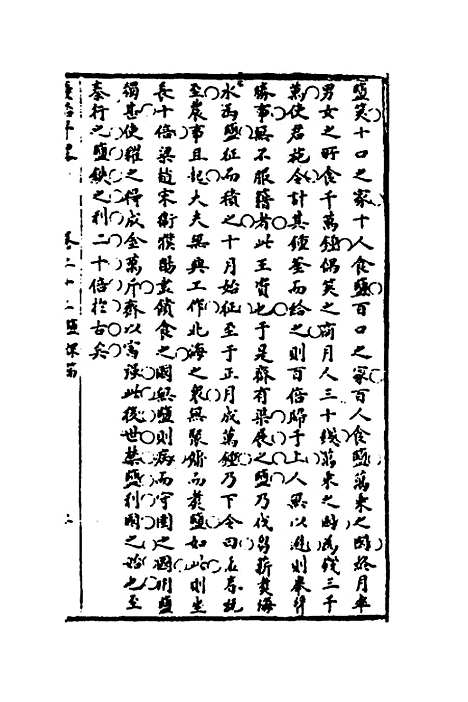 鹽筴十口之家十人食鹽百口之家百人食鹽萬乘之國終月率
男女之所食千萬鍾偶筴之商月人三十錢萬乘之國為錢三千
萬使君施令計其鍾釜而給之則百倍歸于上人無以避則奉行
勝事無不服籍者此王資也于是齊有渠展之鹽乃伐菹薪煑海
水為鹽征而積之十月始征至于正月成萬鍾乃下令曰孟春既
至農事且起大夫無興工作北海之衆無聚傭而煑鹽如此則坐
長十倍梁趙宋衛濮陽盡饋食之國無鹽則病而守圉之國用鹽
獨甚使糶之得成金萬斤齊以富强此後世禁鹽利國之始也至
秦行之鹽鐵之利二十倍於古矣
卷二十二鹽課篇 二